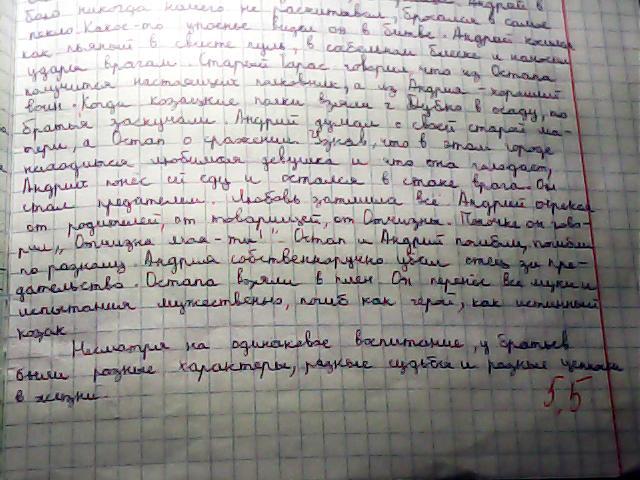 бою никогда ничего не рассчитывал, бросался в самое
пекло. Какое-то упоенье видел он в битве. Андрий кошмар
как пьяный в свисте пуль, в сабельном блеске и наносил
удары врагам. Старый Тарас говорил, что из Остапа
получится настоящих полковник, а из Андрия - хороший
воин. Когда козацкие полки взяли г. Дубно в осаду, то
братья заскучали. Андрий думал о своей старой ма-
тери, а Остап о сражении. Узнав, что в этом городе
находится любимая девушка и что она голодает,
Андрий понёс ей еду и остался в стане врага. Он
стал предателем. Любовь затмила всё. Андрий отрёкся
от родителей, от товарищей, от Отчизны. Паночке он гово-
рил „Отчизна моя - ты". Остап и Андрий погибли, погибли
по разному. Андрия собственноручно убил отец за пре-
дательство. Остапа взяли в плен. Он перенёс все муки и
испытания мужественно, погиб как герой, как истинный
козак.
Несмотря на одинаковое воспитание, у братьев
были разные характеры, разные судьбы и разные ценности
в жизни.
5,5